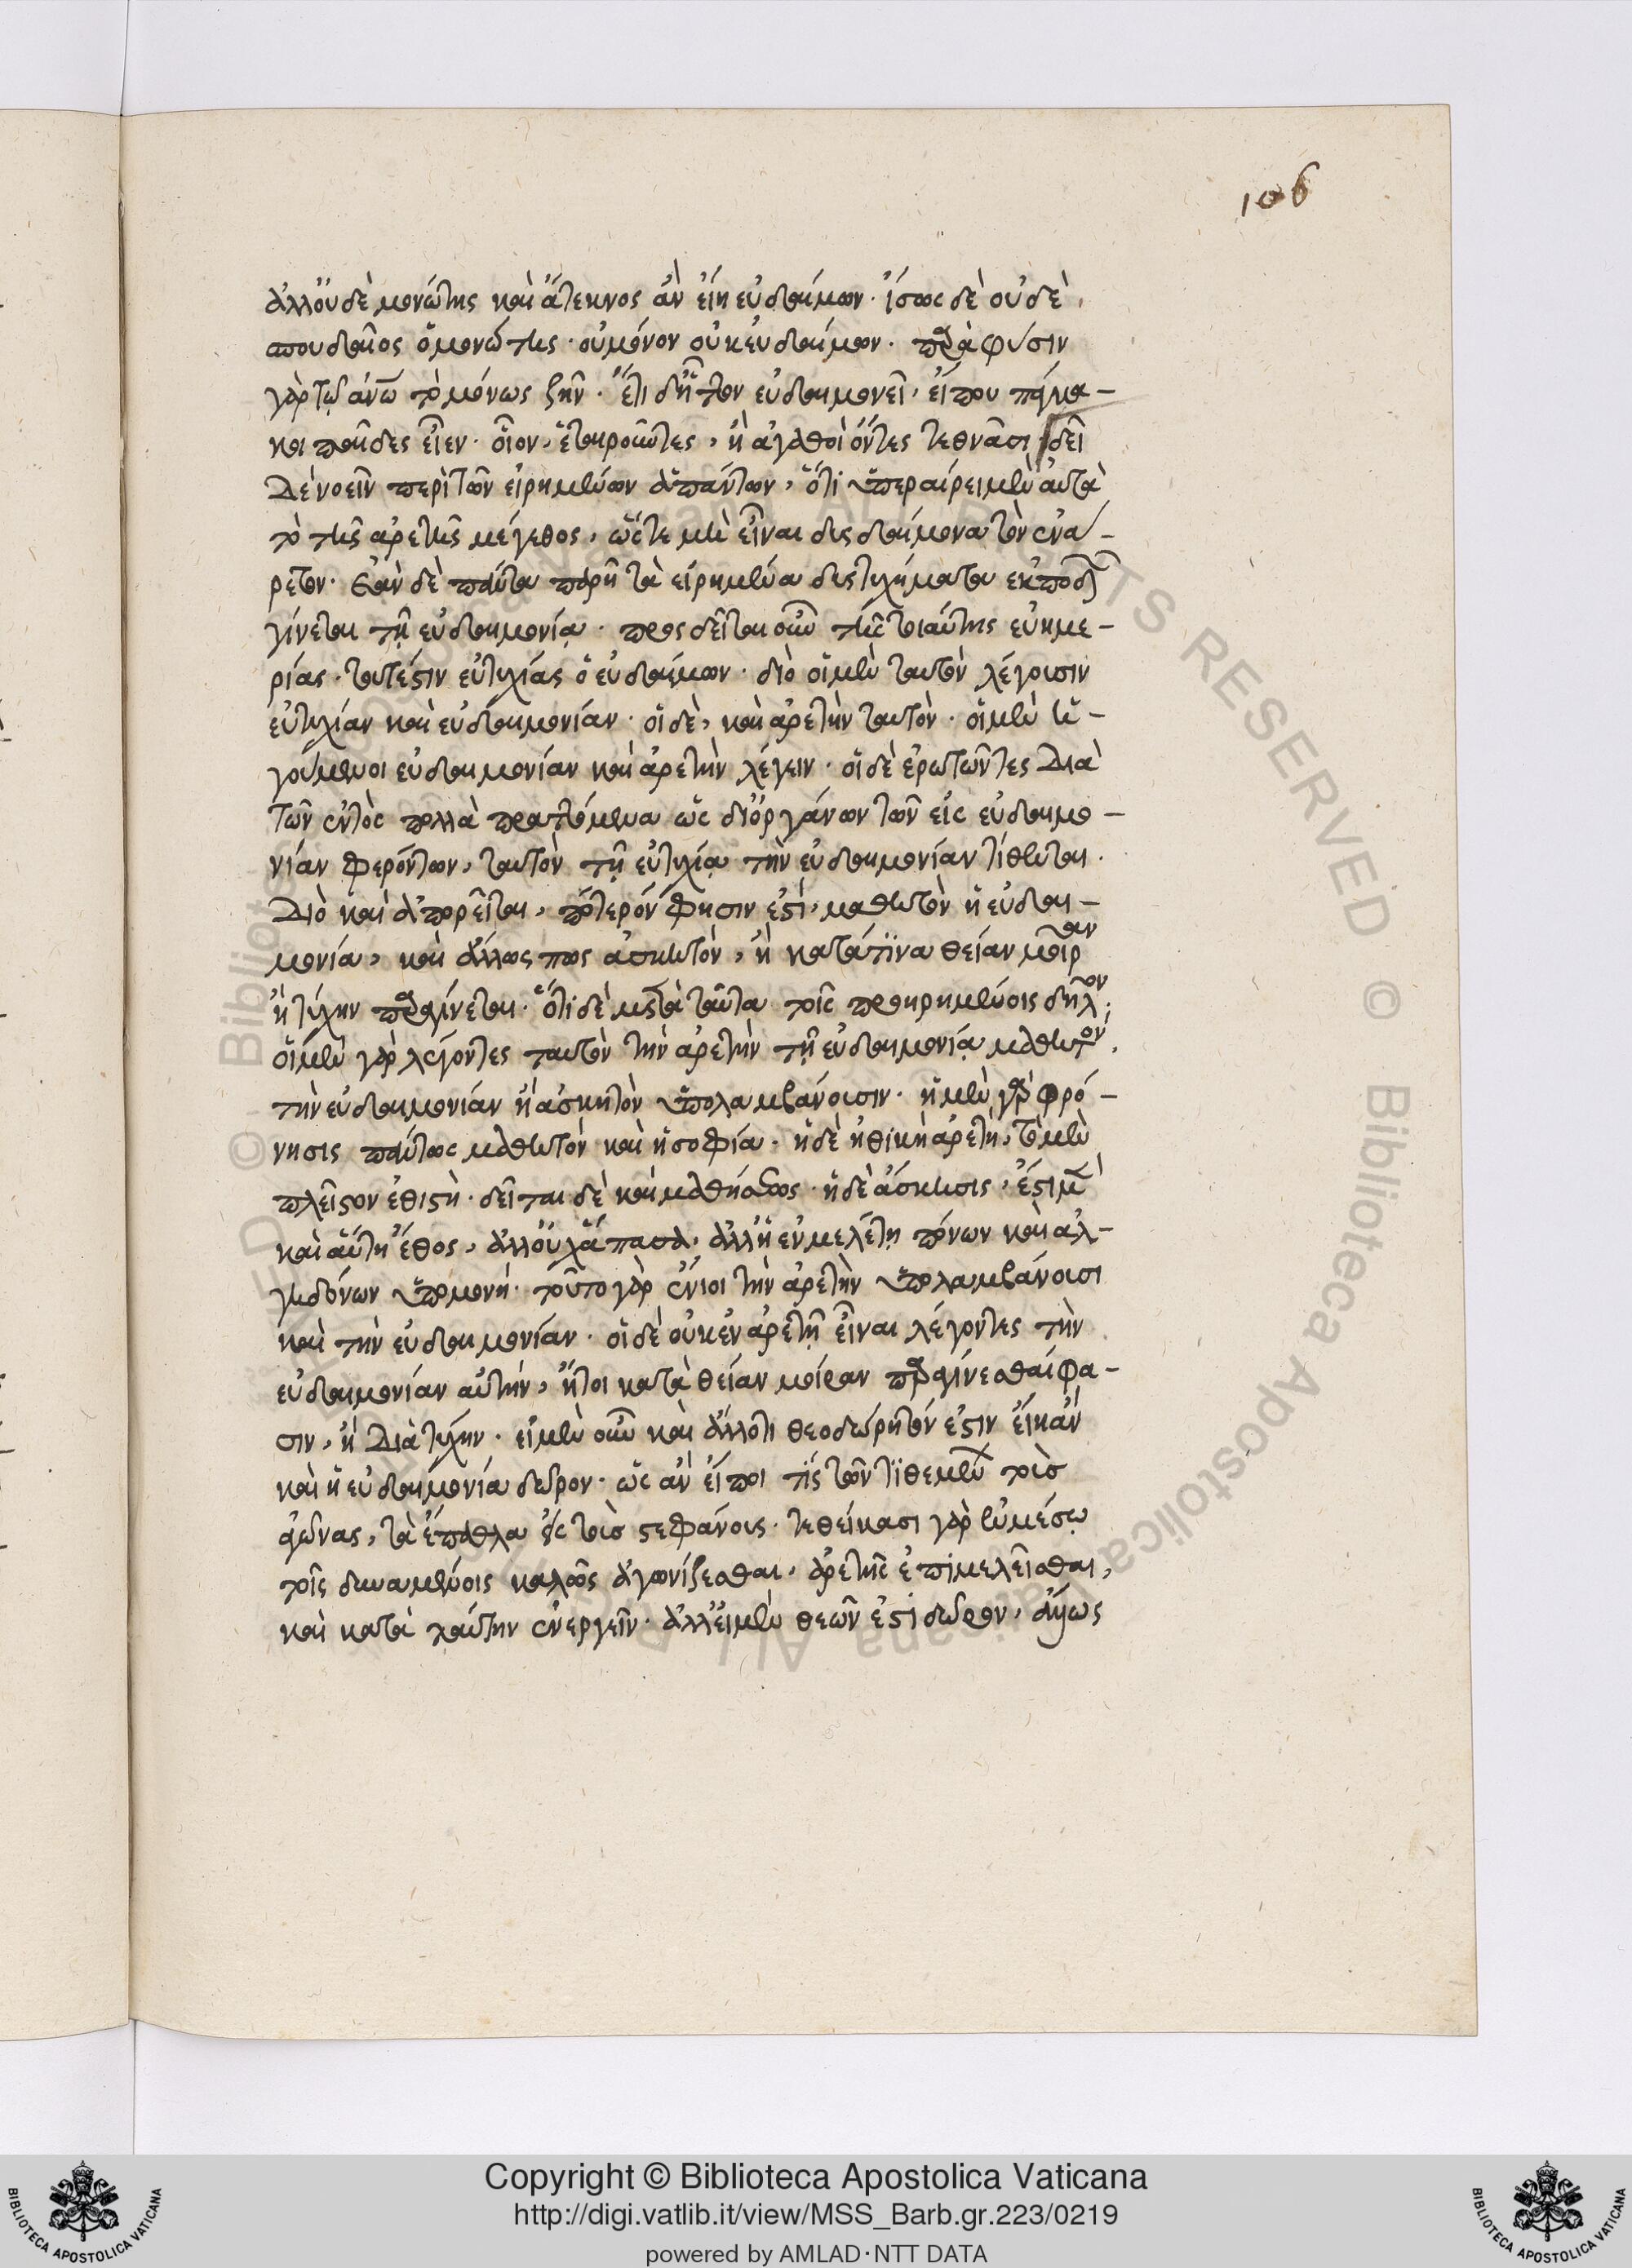 106
ἀλλ' οὐδὲ μονώτης καὶ ἄτεκνος ἂν εἴη εὐδαίμων. ἴσως δὲ οὐδὲ
σπουδαῖος ὁ μονώτης. οὐ μόνον οὐκ εὐδαίμων. παρὰ φύσιν
γὰρ τῷ ἀνω τὸ μόνως ζῆν. ἔτι δ' ἧττον εὐδαιμονεῖ, εἴ που πάγκα-
κοι παῖδες εἶεν. οἷον, ἑταιροῦντες, ἢ ἀγαθοὶ ὄντες τεθνᾶσι δεῖ
δὲ νοεῖν περὶ τῶν εἰρημένων ἁπάντων, ὅτι ὑπεραίρει μὲν αὐτὰ
τὸ τῆς ἀρετῆς μέγεθος, ὥστε μὴ εἶναι δυσδαίμονα τὸν ἐνά-
ρετον. ἐὰν δὲ πάντα παρῇ τὰ εἰρημένα δυστυχήματα ἐκποδ
γίνεται τῇ εὐδαιμονίᾳ. προσδεῖται οὖν τῆς τοιαύτης εὐημε-
ρίας. τουτέστιν εὐτυχίας ὁ εὐδαίμων. διὸ οἱ μὲν ταυτὸν λέγουσιν
εὐτυχίαν καὶ εὐδαιμονίαν. οἱ δὲ, καὶ ἀρετὴν ταυτόν. οἱ μὲν ἡ-
γούμενοι εὐδαιμονίαν καὶ ἀρετὴν λέγειν. οἱ δὲ ἐρωτῶντες διὰ
τῶν ἐντὸς πολλὰ πραττόμενα ὡς δι' ὀργάνων τῶν εἰς εὐδαιμο-
νίαν φερόντων, ταυτὸν τῇ εὐτυχίᾳ τὴν εὐδαιμονίαν τίθενται.
Διὸ καὶ ἀπορεῖται, πότερόν φησιν ἐστὶ, μαθητὸν ἡ εὐδαι-
μονία, καὶ ἄλλως πως ἀσκητόν, ἢ κατά τινα θείαν μοῖραν
ἢ τύχην παραγίνεται. ὅτι δὲ μετὰ ταῦτα τοῖς προηρημένοις δῆλον.
οἱ μὲν γὰρ λέγοντες ταυτὸν τὴν ἀρετὴν τῇ εὐδαιμονίᾳ μαθητόν,
τὴν εὐδαιμονίαν ἢ ἀσκητὸν ὑπολαμβάνουσιν. ἡ μὲν γὰρ φρό-
νησις πάντως μαθητὸν καὶ ἡ σοφία. ἡ δὲ ἠθικὴ ἀρετὴ, τὸ μὲν
πλεῖστον ἐθιστὴ. δεῖται δὲ καὶ μαθήσεως. ἡ δὲ ἄσκησις, ἐστὶ μὲν
καὶ αὕτη ἔθος, ἀλλ' οὐχ ἅπασα, ἀλλ' ἡ ἐν μελέτῃ πόνων καὶ ἀλ-
γηδόνων ὑπομονή. τοῦτο γὰρ ἔνιοι τὴν ἀρετὴν ὑπολαμβάνουσι
καὶ τὴν εὐδαιμονίαν. οἱ δὲ οὐκ ἐν ἀρετῇ εἶναι λέγοντες τὴν
εὐδαιμονίαν αὐτήν, ἤτοι κατὰ θείαν μοῖραν παραγίνεσθαί φα-
σιν, ἢ διὰ τύχην. εἰ μὲν οὖν καὶ ἄλλό τι θεοδώρητόν ἐστιν εἴη ἂν
καὶ ἡ εὐδαιμονία δῶρον. ὡς ἂν εἴποι τίς τῶν τιθεμένων τοὺς
ἀγῶνας, τὰ ἔπαθλα καὶ τοὺς στεφάνους. τεθείκασι γὰρ ἐν μέσῳ
τοῖς δυναμένοις καλῶς ἀγωνίζεσθαι, ἀρετῆς ἐπιμελεῖσθαι,
καὶ κατὰ ταύτην ἐνεργεῖν. ἀλλ' εἰ μὲν θεῶν ἐστὶ δῶρον,
Copyright © Biblioteca Apostolica Vaticana
http://digi.vatlib.it/view/MSS_Barb.gr.223/0219
powered by AMLAD·NTT DATA
BIBLIOTECA APOSTOLICA VATICANA
BIBLIOTECA APOSTOLICA VATICANA